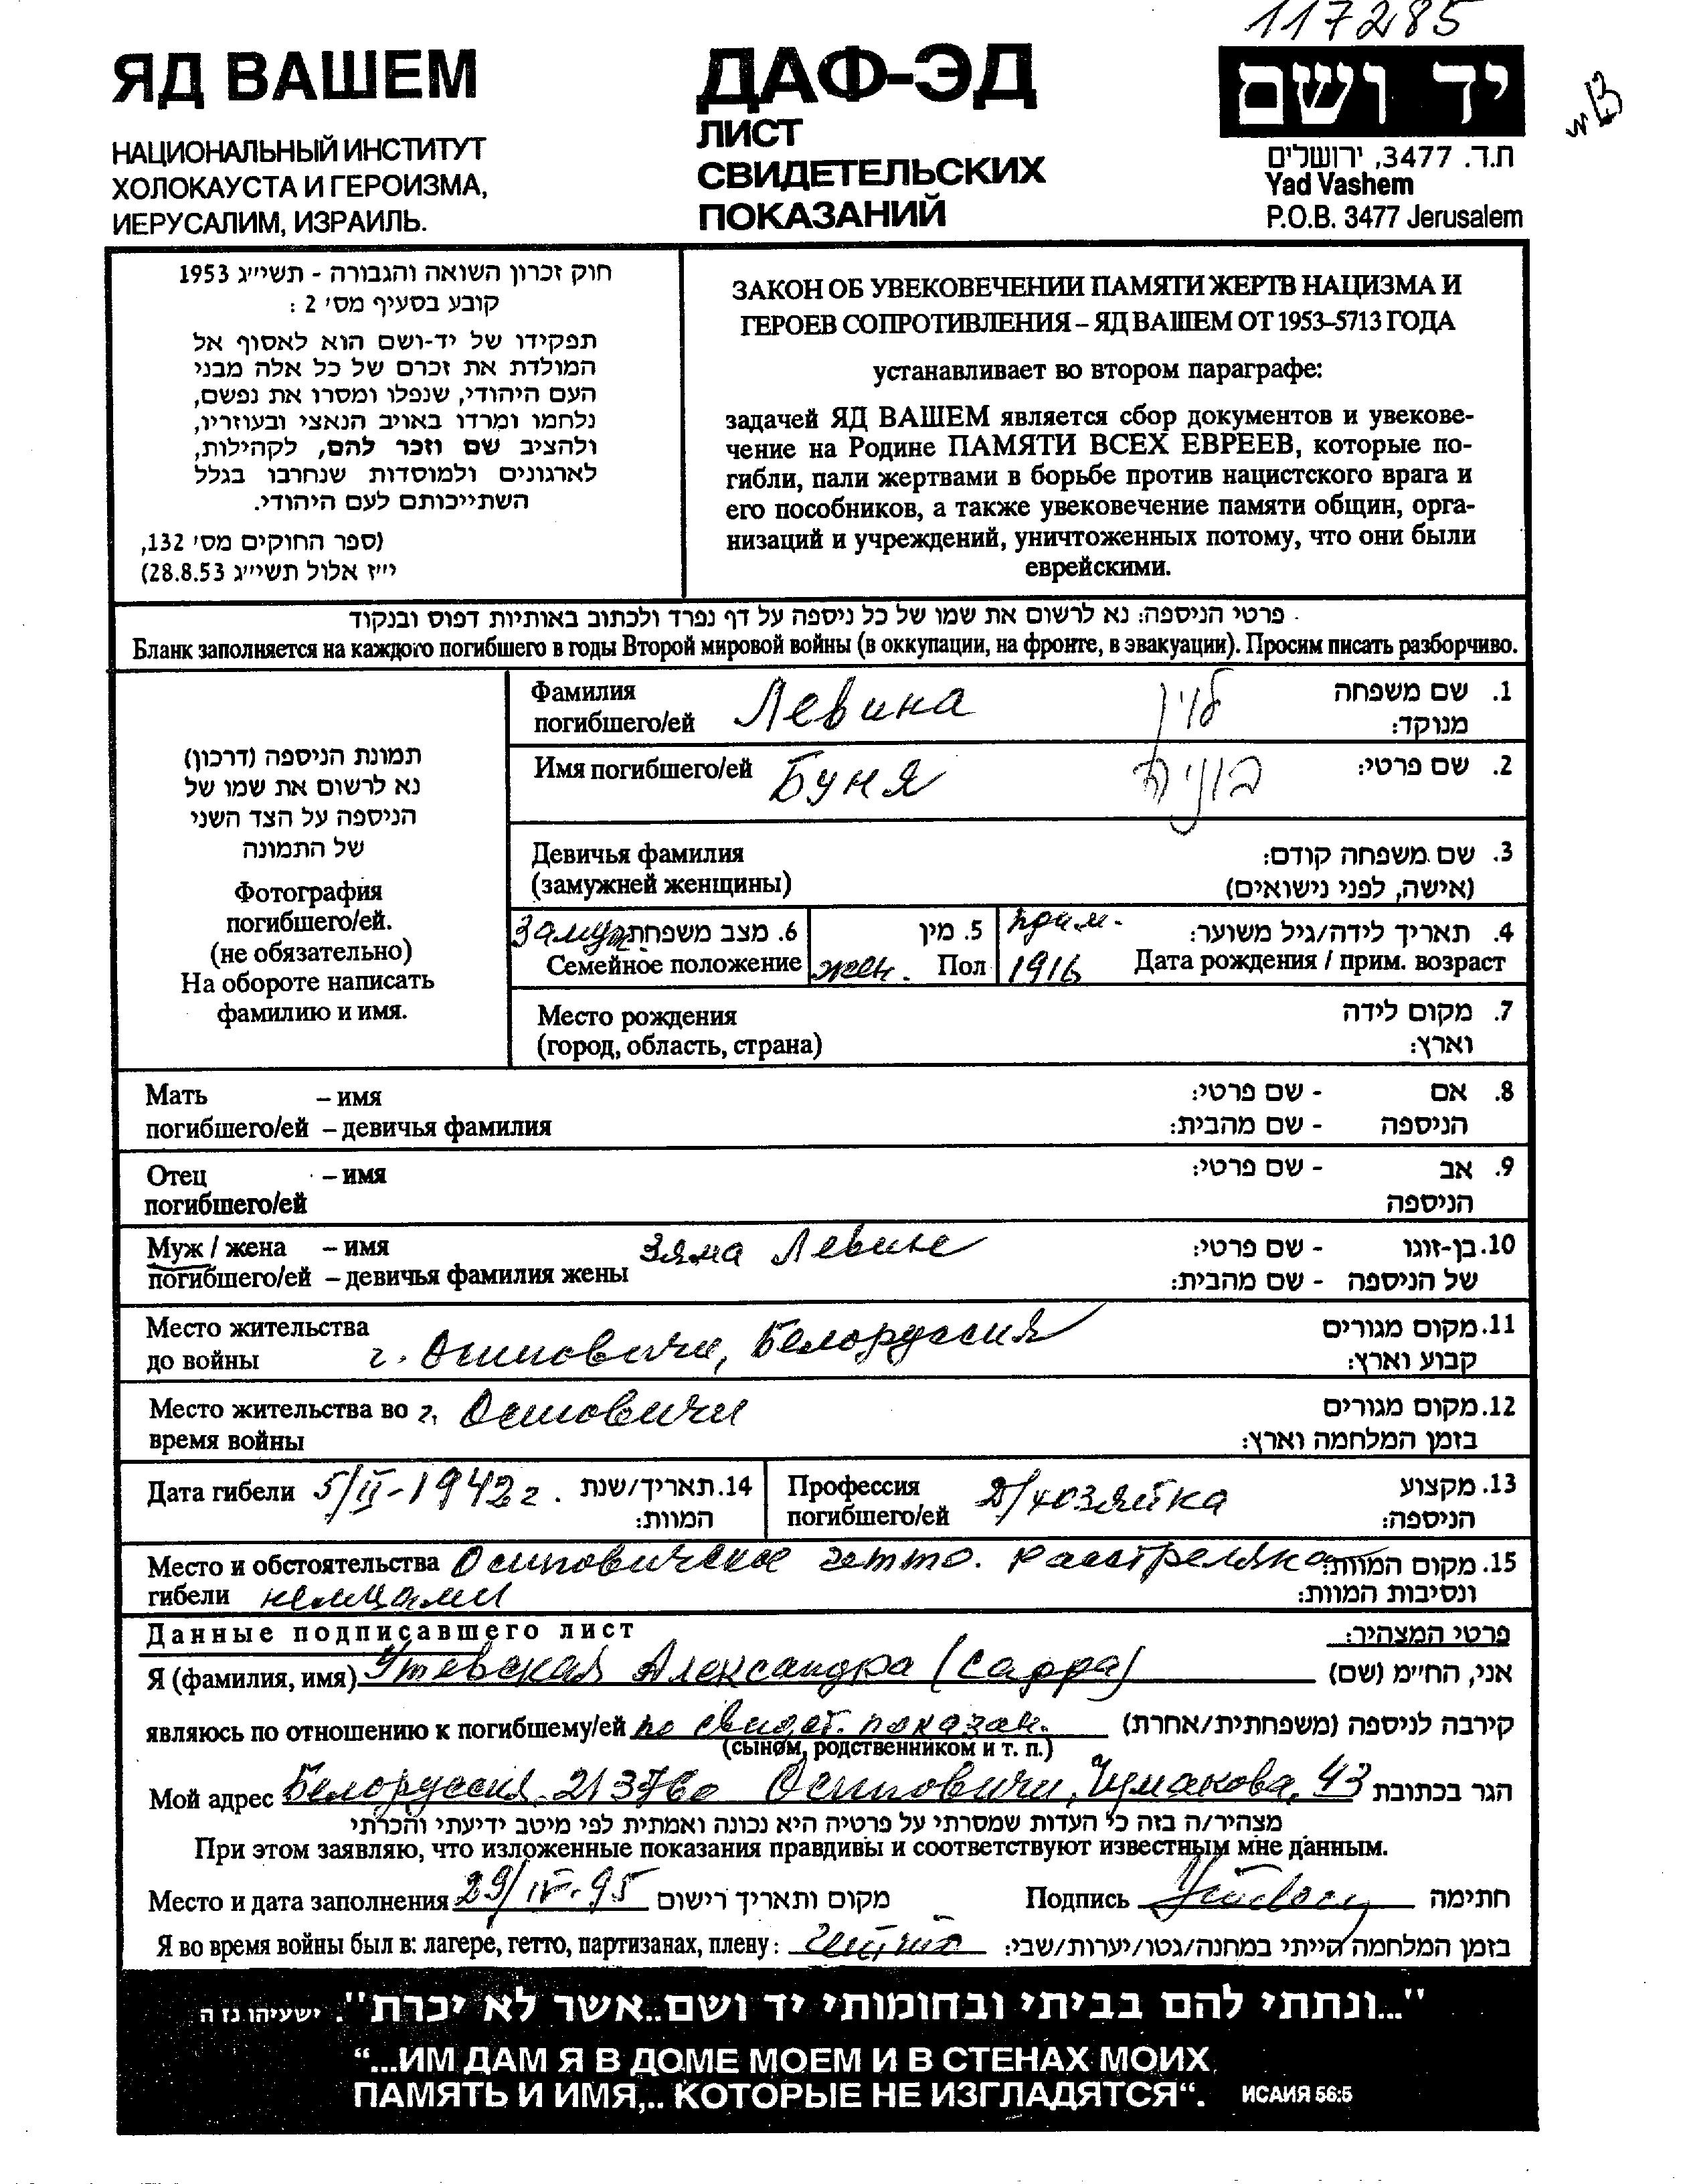 117285
ЯД ВАШЕМ
НАЦИОНАЛЬНЫЙ ИНСТИТУТ
ХОЛОКАУСТА И ГЕРОИЗМА,
ИЕРУСАЛИМ, ИЗРАИЛЬ.
ДАФ-ЭД
ЛИСТ
СВИДЕТЕЛЬСКИХ
ПОКАЗАНИЙ
יד ושם
ת.ד. 3477, ירושלים
Yad Vashem
P.O.B. 3477 Jerusalem
חוק זכרון השואה והגבורה - תשי״ג 1953
קובע בסעיף מס׳ 2 :
תפקידו של יד-ושם הוא לאסוף אל
המולדת את זכרם של כל אלה מבני
העם היהודי, שנפלו ומסרו את נפשם,
נלחמו ומרדו באויב הנאצי ובעוזריו,
ולהציב שם וזכר להם, לקהילות,
לארגונים ולמוסדות שנחרבו בגלל
השתייכותם לעם היהודי.
(ספר החוקים מס׳ 132,
י״ז אלול תשי״ג 28.8.53)
ЗАКОН ОБ УВЕКОВЕЧЕНИИ ПАМЯТИ ЖЕРТВ НАЦИЗМА И
ГЕРОЕВ СОПРОТИВЛЕНИЯ – ЯД ВАШЕМ ОТ 1953–5713 ГОДА
устанавливает во втором параграфе:
задачей ЯД ВАШЕМ является сбор документов и увекове-
чение на Родине ПАМЯТИ ВСЕХ ЕВРЕЕВ, которые по-
гибли, пали жертвами в борьбе против нацистского врага и
его пособников, а также увековечение памяти общин, орга-
низаций и учреждений, уничтоженных потому, что они были
еврейскими.
פרטי הניספה: נא לרשום את שמו של כל ניספה על דף נפרד ולכתוב באותיות דפוס ובנקוד
Бланк заполняется на каждого погибшего в годы Второй мировой войны (в оккупации, на фронте, в эвакуации). Просим писать разборчиво.
תמונת הניספה (דרכון)
נא לרשום את שמו של
הניספה על הצד השני
של התמונה
Фотография
погибшего/ей.
(не обязательно)
На обороте написать
фамилию и имя.
Фамилия 1. שם משפחה
погибшего/ей Левина לוין מנוקד:
Имя погибшего/ей Буня בוניה 2. שם פרטי:
Девичья фамилия 3. שם משפחה קודם:
(замужней женщины) (אישה, לפני נישואים)
Замуж 6. מצב משפחתי 5. מין прим. 4. תאריך לידה/גיל משוער:
Семейное положение жен. Пол 1916 Дата рождения / прим. возраст
Место рождения 7. מקום לידה
(город, область, страна) וארץ:
Мать – имя 8. אם - שם פרטי:
погибшего/ей – девичья фамилия הניספה - שם מהבית:
Отец – имя 9. אב - שם פרטי:
погибшего/ей הניספה
Муж / жена – имя Зяма Левин 10. בן-זוגו - שם פרטי:
погибшего/ей – девичья фамилия жены של הניספה - שם מהבית:
Место жительства 11. מקום מגורים
до войны г. Осиповичи, Белоруссия קבוע וארץ:
Место жительства во г. Осиповичи 12. מקום מגורים
время войны בזמן המלחמה וארץ:
Дата гибели 5/II-1942 г. 14. תאריך/שנת המוות:
Профессия 13. מקצוע
погибшего/ей Д/хозяйка הניספה:
Место и обстоятельства Осиповичское гетто. Расстреляна 15. מקום המוות
гибели немцами ונסיבות המוות:
Данные подписавшего лист פרטי המצהיר:
Я (фамилия, имя) Утевская Александра (Сарра) אני, הח״מ (שם)
являюсь по отношению к погибшему/ей по свидет. показан. קירבה לניספה (משפחתית/אחרת)
(сыном, родственником и т. п.)
Мой адрес Белоруссия 213760 Осиповичи, Чумакова, 43 הגר בכתובת
מצהיר/ה בזה כי העדות שמסרתי על פרטיה היא נכונה ואמתית לפי מיטב ידיעתי והכרתי
При этом заявляю, что изложенные показания правдивы и соответствуют известным мне данным.
Место и дата заполнения 29/IV-95 מקום ותאריך רישום Подпись חתימה
Я во время войны был в: лагере, гетто, партизанах, плену: гетто בזמן המלחמה הייתי במחנה/גטו/יערות/שבי:
"...ונתתי להם בביתי ובחומותי יד ושם..אשר לא יכרת". ישעיהו נז ה
“...ИМ ДАМ Я В ДОМЕ МОЕМ И В СТЕНАХ МОИХ
ПАМЯТЬ И ИМЯ,.. КОТОРЫЕ НЕ ИЗГЛАДЯТСЯ“. ИСАИЯ 56:5